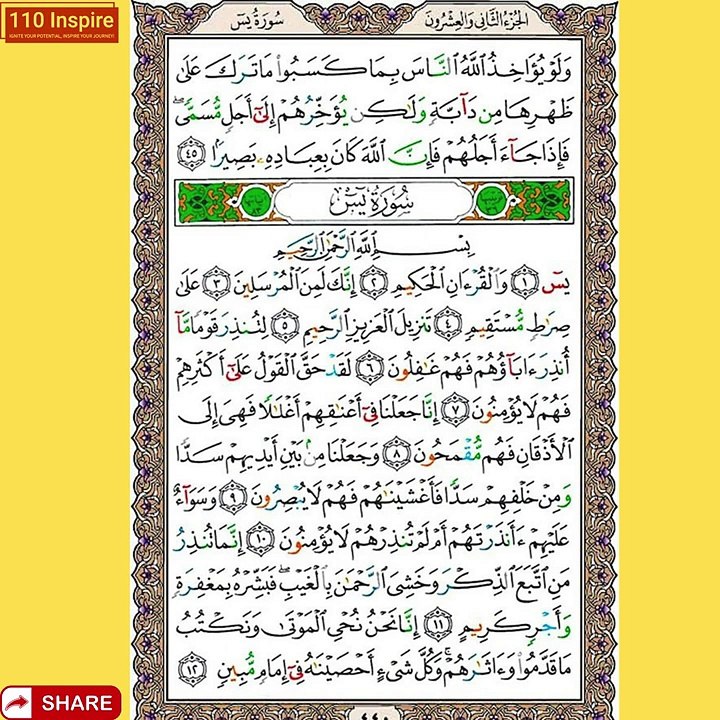 110 Inspire
IGNITE YOUR POTENTIAL, INSPIRE YOUR JOURNEY!
الجزء الثاني والعشرون
سورة يس
وَلَوْ يُؤَاخِذُ ٱللَّهُ ٱلنَّاسَ بِمَا كَسَبُوا۟ مَا تَرَكَ عَلَىٰ
ظَهْرِهَا مِن دَآبَّةٍ وَلَـٰكِن يُؤَخِّرُهُمْ إِلَىٰٓ أَجَلٍ مُّسَمًّى ۖ
فَإِذَا جَآءَ أَجَلُهُمْ فَإِنَّ ٱللَّهَ كَانَ بِعِبَادِهِۦ بَصِيرًۢا ٤٥
سُورَةُ يسٓ
بِسْمِ ٱللَّهِ ٱلرَّحْمَـٰنِ ٱلرَّحِيمِ
يسٓ ١ وَٱلْقُرْءَانِ ٱلْحَكِيمِ ٢ إِنَّكَ لَمِنَ ٱلْمُرْسَلِينَ ٣ عَلَىٰ
صِرَٰطٍ مُّسْتَقِيمٍ ٤ تَنزِيلَ ٱلْعَزِيزِ ٱلرَّحِيمِ ٥ لِتُنذِرَ قَوْمًا مَّآ
أُنذِرَ ءَابَآؤُهُمْ فَهُمْ غَـٰفِلُونَ ٦ لَقَدْ حَقَّ ٱلْقَوْلُ عَلَىٰٓ أَكْثَرِهِمْ
فَهُمْ لَا يُؤْمِنُونَ ٧ إِنَّا جَعَلْنَا فِىٓ أَعْنَـٰقِهِمْ أَغْلَـٰلًا فَهِىَ إِلَى
ٱلْأَذْقَانِ فَهُم مُّقْمَحُونَ ٨ وَجَعَلْنَا مِنۢ بَيْنِ أَيْدِيهِمْ سَدًّا
وَمِنْ خَلْفِهِمْ سَدًّا فَأَغْشَيْنَـٰهُمْ فَهُمْ لَا يُبْصِرُونَ ٩ وَسَوَآءٌ
عَلَيْهِمْ ءَأَنذَرْتَهُمْ أَمْ لَمْ تُنذِرْهُمْ لَا يُؤْمِنُونَ ١٠ إِنَّمَا تُنذِرُ
مَنِ ٱتَّبَعَ ٱلذِّكْرَ وَخَشِىَ ٱلرَّحْمَـٰنَ بِٱلْغَيْبِ ۖ فَبَشِّرْهُ بِمَغْفِرَةٍ
وَأَجْرٍ كَرِيمٍ ١١ إِنَّا نَحْنُ نُحْىِ ٱلْمَوْتَىٰ وَنَكْتُبُ
مَا قَدَّمُوا۟ وَءَاثَـٰرَهُمْ ۚ وَكُلَّ شَىْءٍ أَحْصَيْنَـٰهُ فِىٓ إِمَامٍ مُّبِينٍ ١٢
٤٤٠
SHARE